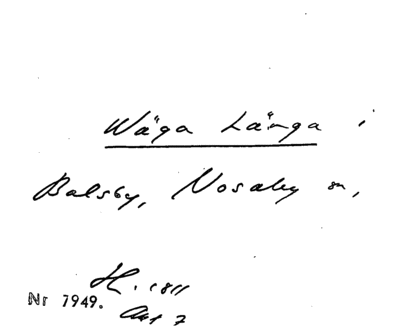 Wäga Länga i
Balsby, Nosaby sn,
H. 1811
Nr 7949.